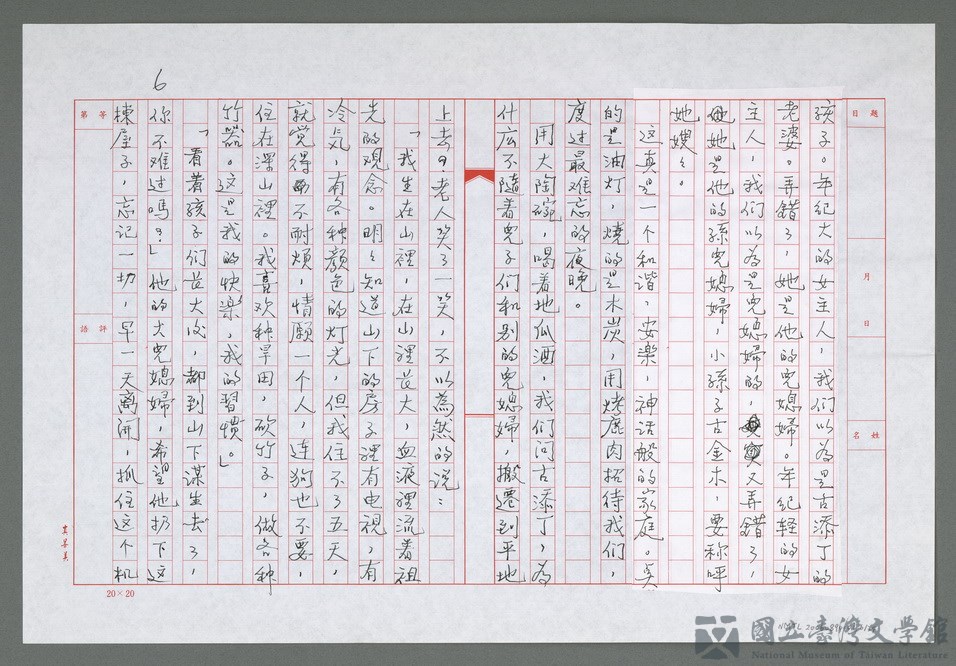 6
題目
月
日
姓名
孩子。年纪大的女主人,我们以為是古添丁的
老婆。弄錯了,她是他的兒媳婦。年纪輕的女
主人,我们以為是兒媳婦的,又弄錯了,
她是他的孫兒媳婦,小孫子古金木,要称呼
她嫂々。
这真是一个和諧,安樂,神话般的家庭。点
的是油灯,燒的是木炭,用烤鹿肉招待我们,
度过最难忘的夜晚。
用大陶碗,喝着地瓜酒,我们问古添丁,為
什庅不隨着兒子们和别的兒媳婦,搬遷到平地
上去?老人笑了一笑,不以為然的说:
「我生在山裡,在山裡長大,血液裡流着祖
先的观念。明々知道山下的房子裡有电視,有
冷気,有各种顏色的灯光,但我住不了五天,
就觉得不耐煩,情願一个人,連狗也不要,
住在深山裡。我喜欢种旱田,砍竹子,做各种
竹器。这是我的快樂,我的習慣。」
「看着孩子们長大後,都到山下謀生去了,
你不难过嗎?」他的大兒媳婦,希望他扔下这
棟屋子,忘记一切,早一天离开,抓住这个机
等第
評語
20×20
國立臺灣文學館
National Museum of Taiwan Literature